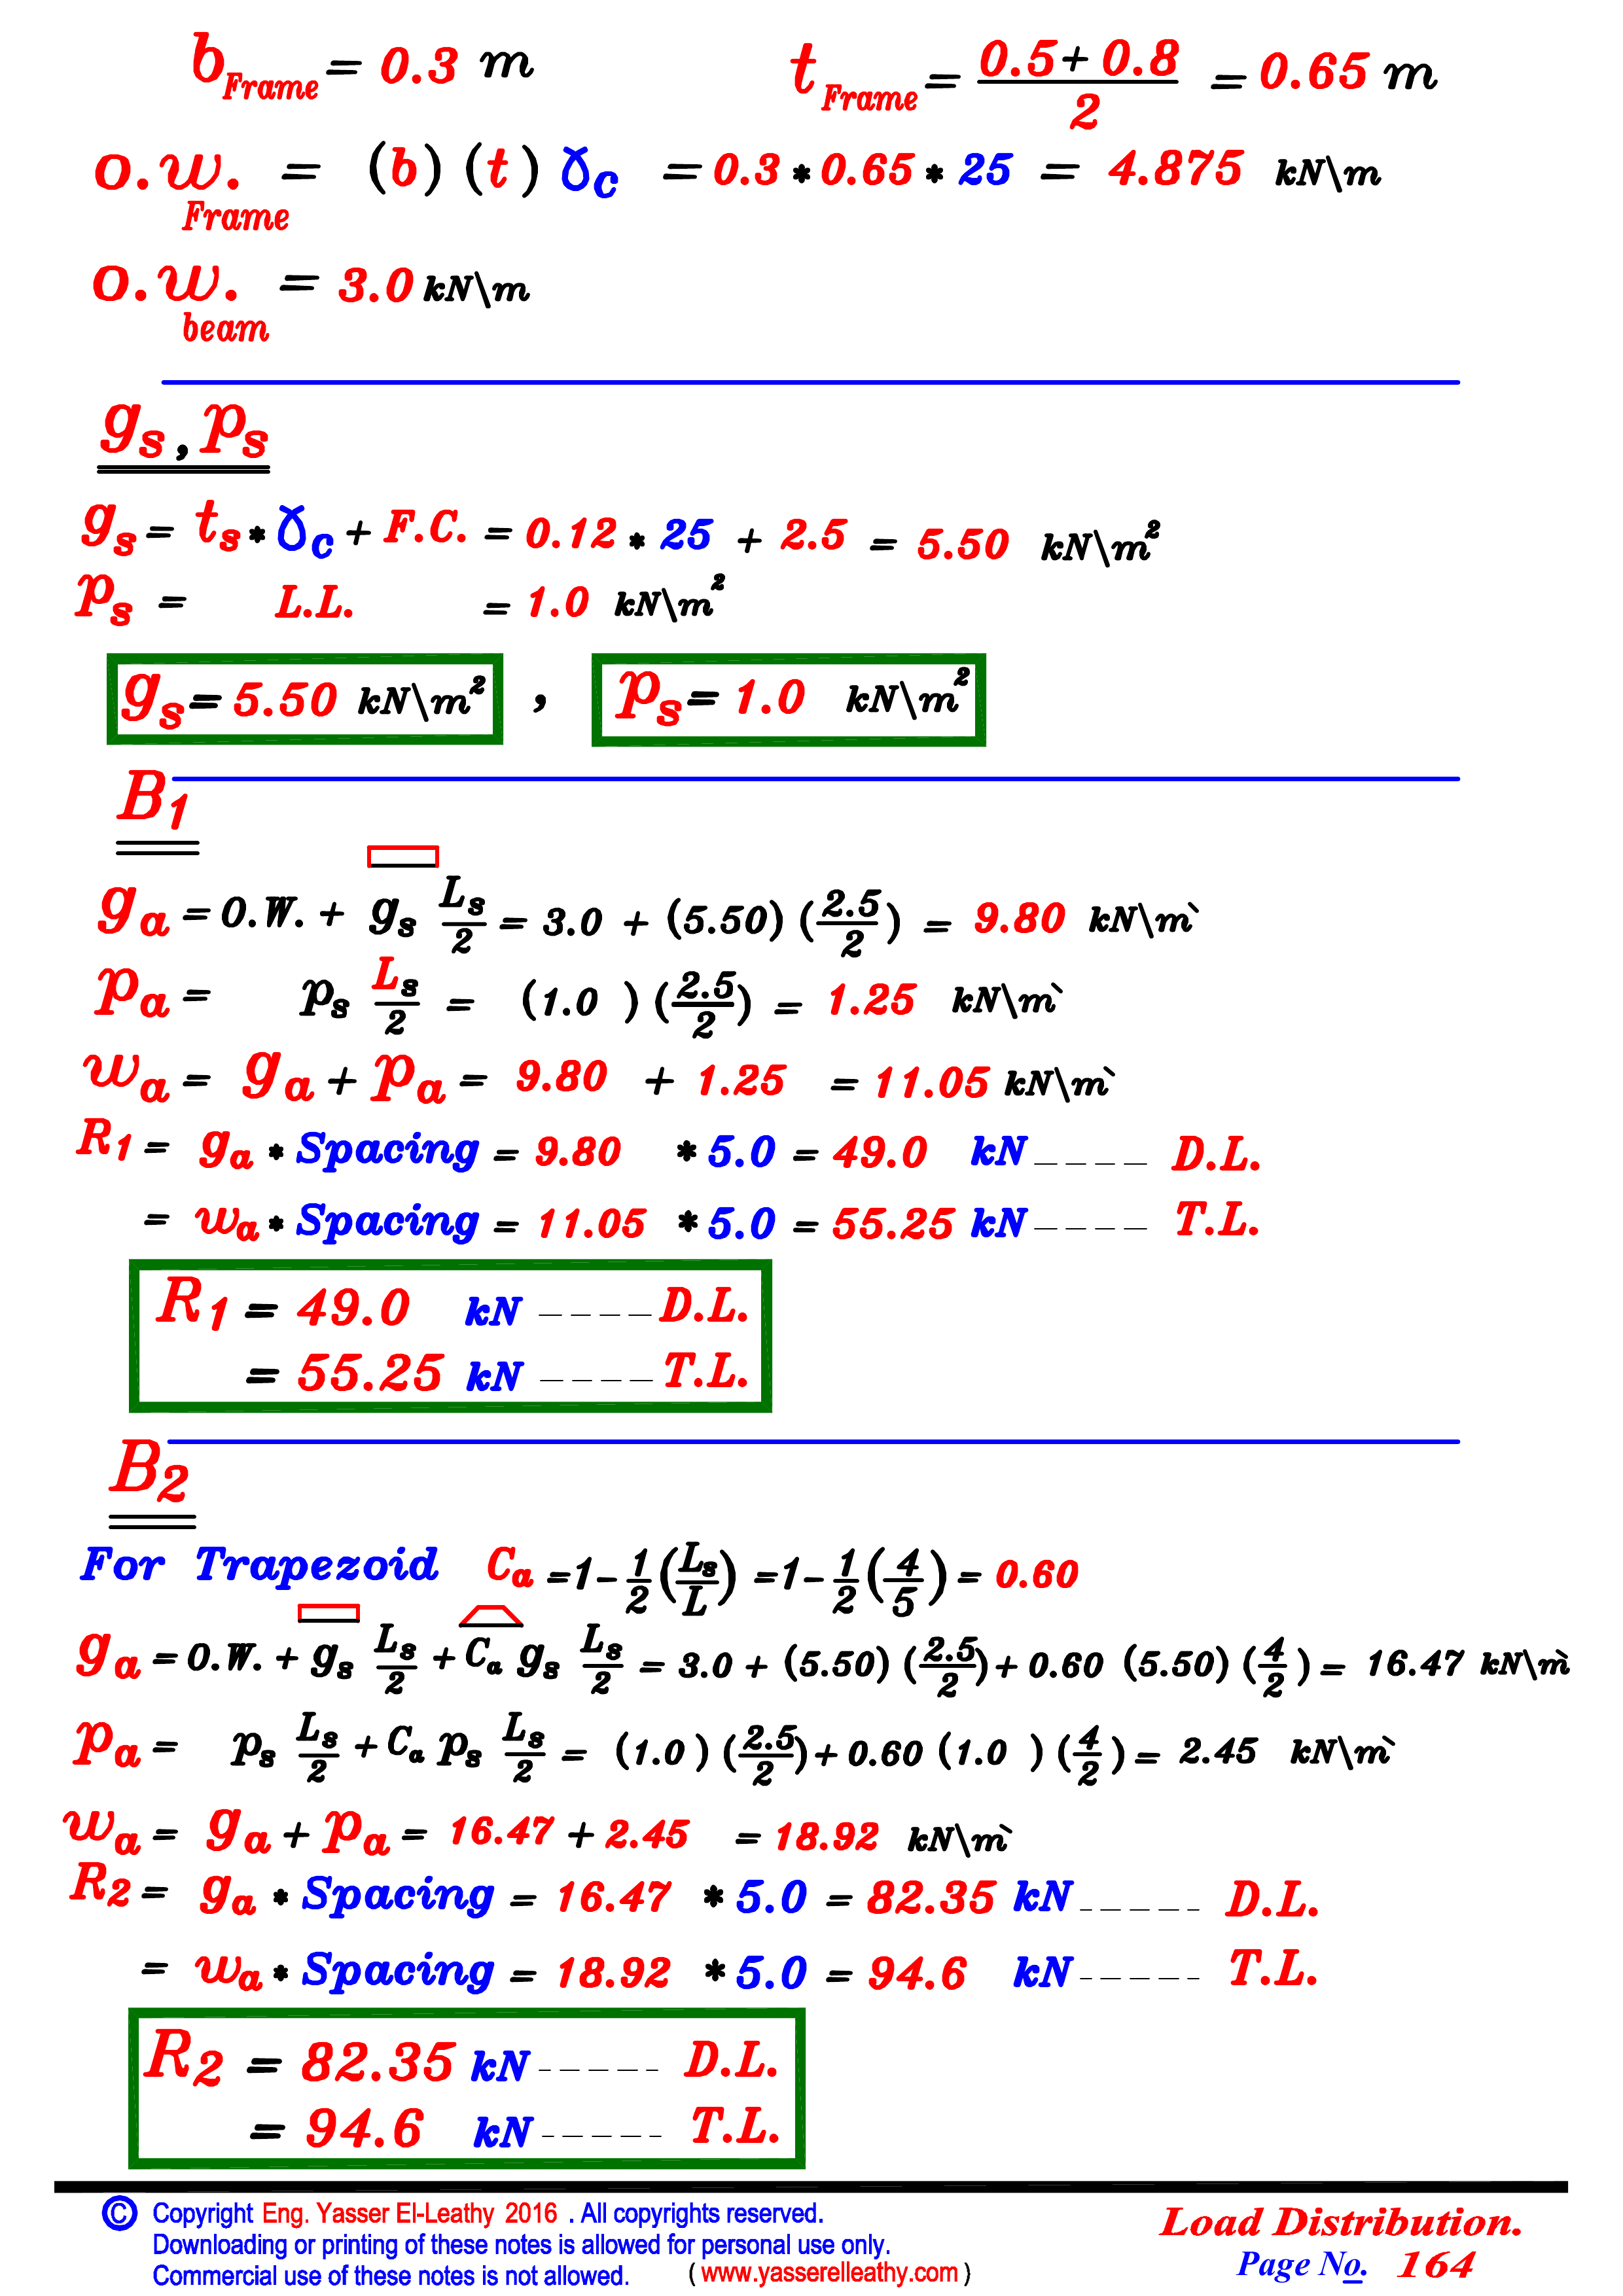 b Frame = 0.3 m    t Frame = (0.5 + 0.8)/2 = 0.65 m
o.w. Frame = (b) (t) ɣc = 0.3 * 0.65 * 25 = 4.875 kN\m
o.w. beam = 3.0 kN\m
gs , ps
gs = ts * ɣc + F.C. = 0.12 * 25 + 2.5 = 5.50 kN\m²
ps = L.L. = 1.0 kN\m²
gs = 5.50 kN\m² , ps = 1.0 kN\m²
B1
ga = O.W. + gs Ls/2 = 3.0 + (5.50) (2.5/2) = 9.80 kN\m`
pa = ps Ls/2 = (1.0 ) (2.5/2) = 1.25 kN\m`
wa = ga + pa = 9.80 + 1.25 = 11.05 kN\m`
R1 = ga * Spacing = 9.80 * 5.0 = 49.0 kN ____ D.L.
= wa * Spacing = 11.05 * 5.0 = 55.25 kN ____ T.L.
R1 = 49.0 kN ____ D.L.
= 55.25 kN ____ T.L.
B2
For Trapezoid Ca = 1 - 1/2 (Ls/L) = 1 - 1/2 (4/5) = 0.60
ga = O.W. + gs Ls/2 + Ca gs Ls/2 = 3.0 + (5.50) (2.5/2) + 0.60 (5.50) (4/2) = 16.47 kN\m`
pa = ps Ls/2 + Ca ps Ls/2 = (1.0 ) (2.5/2) + 0.60 (1.0 ) (4/2) = 2.45 kN\m`
wa = ga + pa = 16.47 + 2.45 = 18.92 kN\m`
R2 = ga * Spacing = 16.47 * 5.0 = 82.35 kN _____ D.L.
= wa * Spacing = 18.92 * 5.0 = 94.6 kN _____ T.L.
R2 = 82.35 kN _____ D.L.
= 94.6 kN _____ T.L.
© Copyright Eng. Yasser El-Leathy 2016 . All copyrights reserved.
Downloading or printing of these notes is allowed for personal use only.
Commercial use of these notes is not allowed. ( www.yasserelleathy.com )
Load Distribution.
Page No. 164